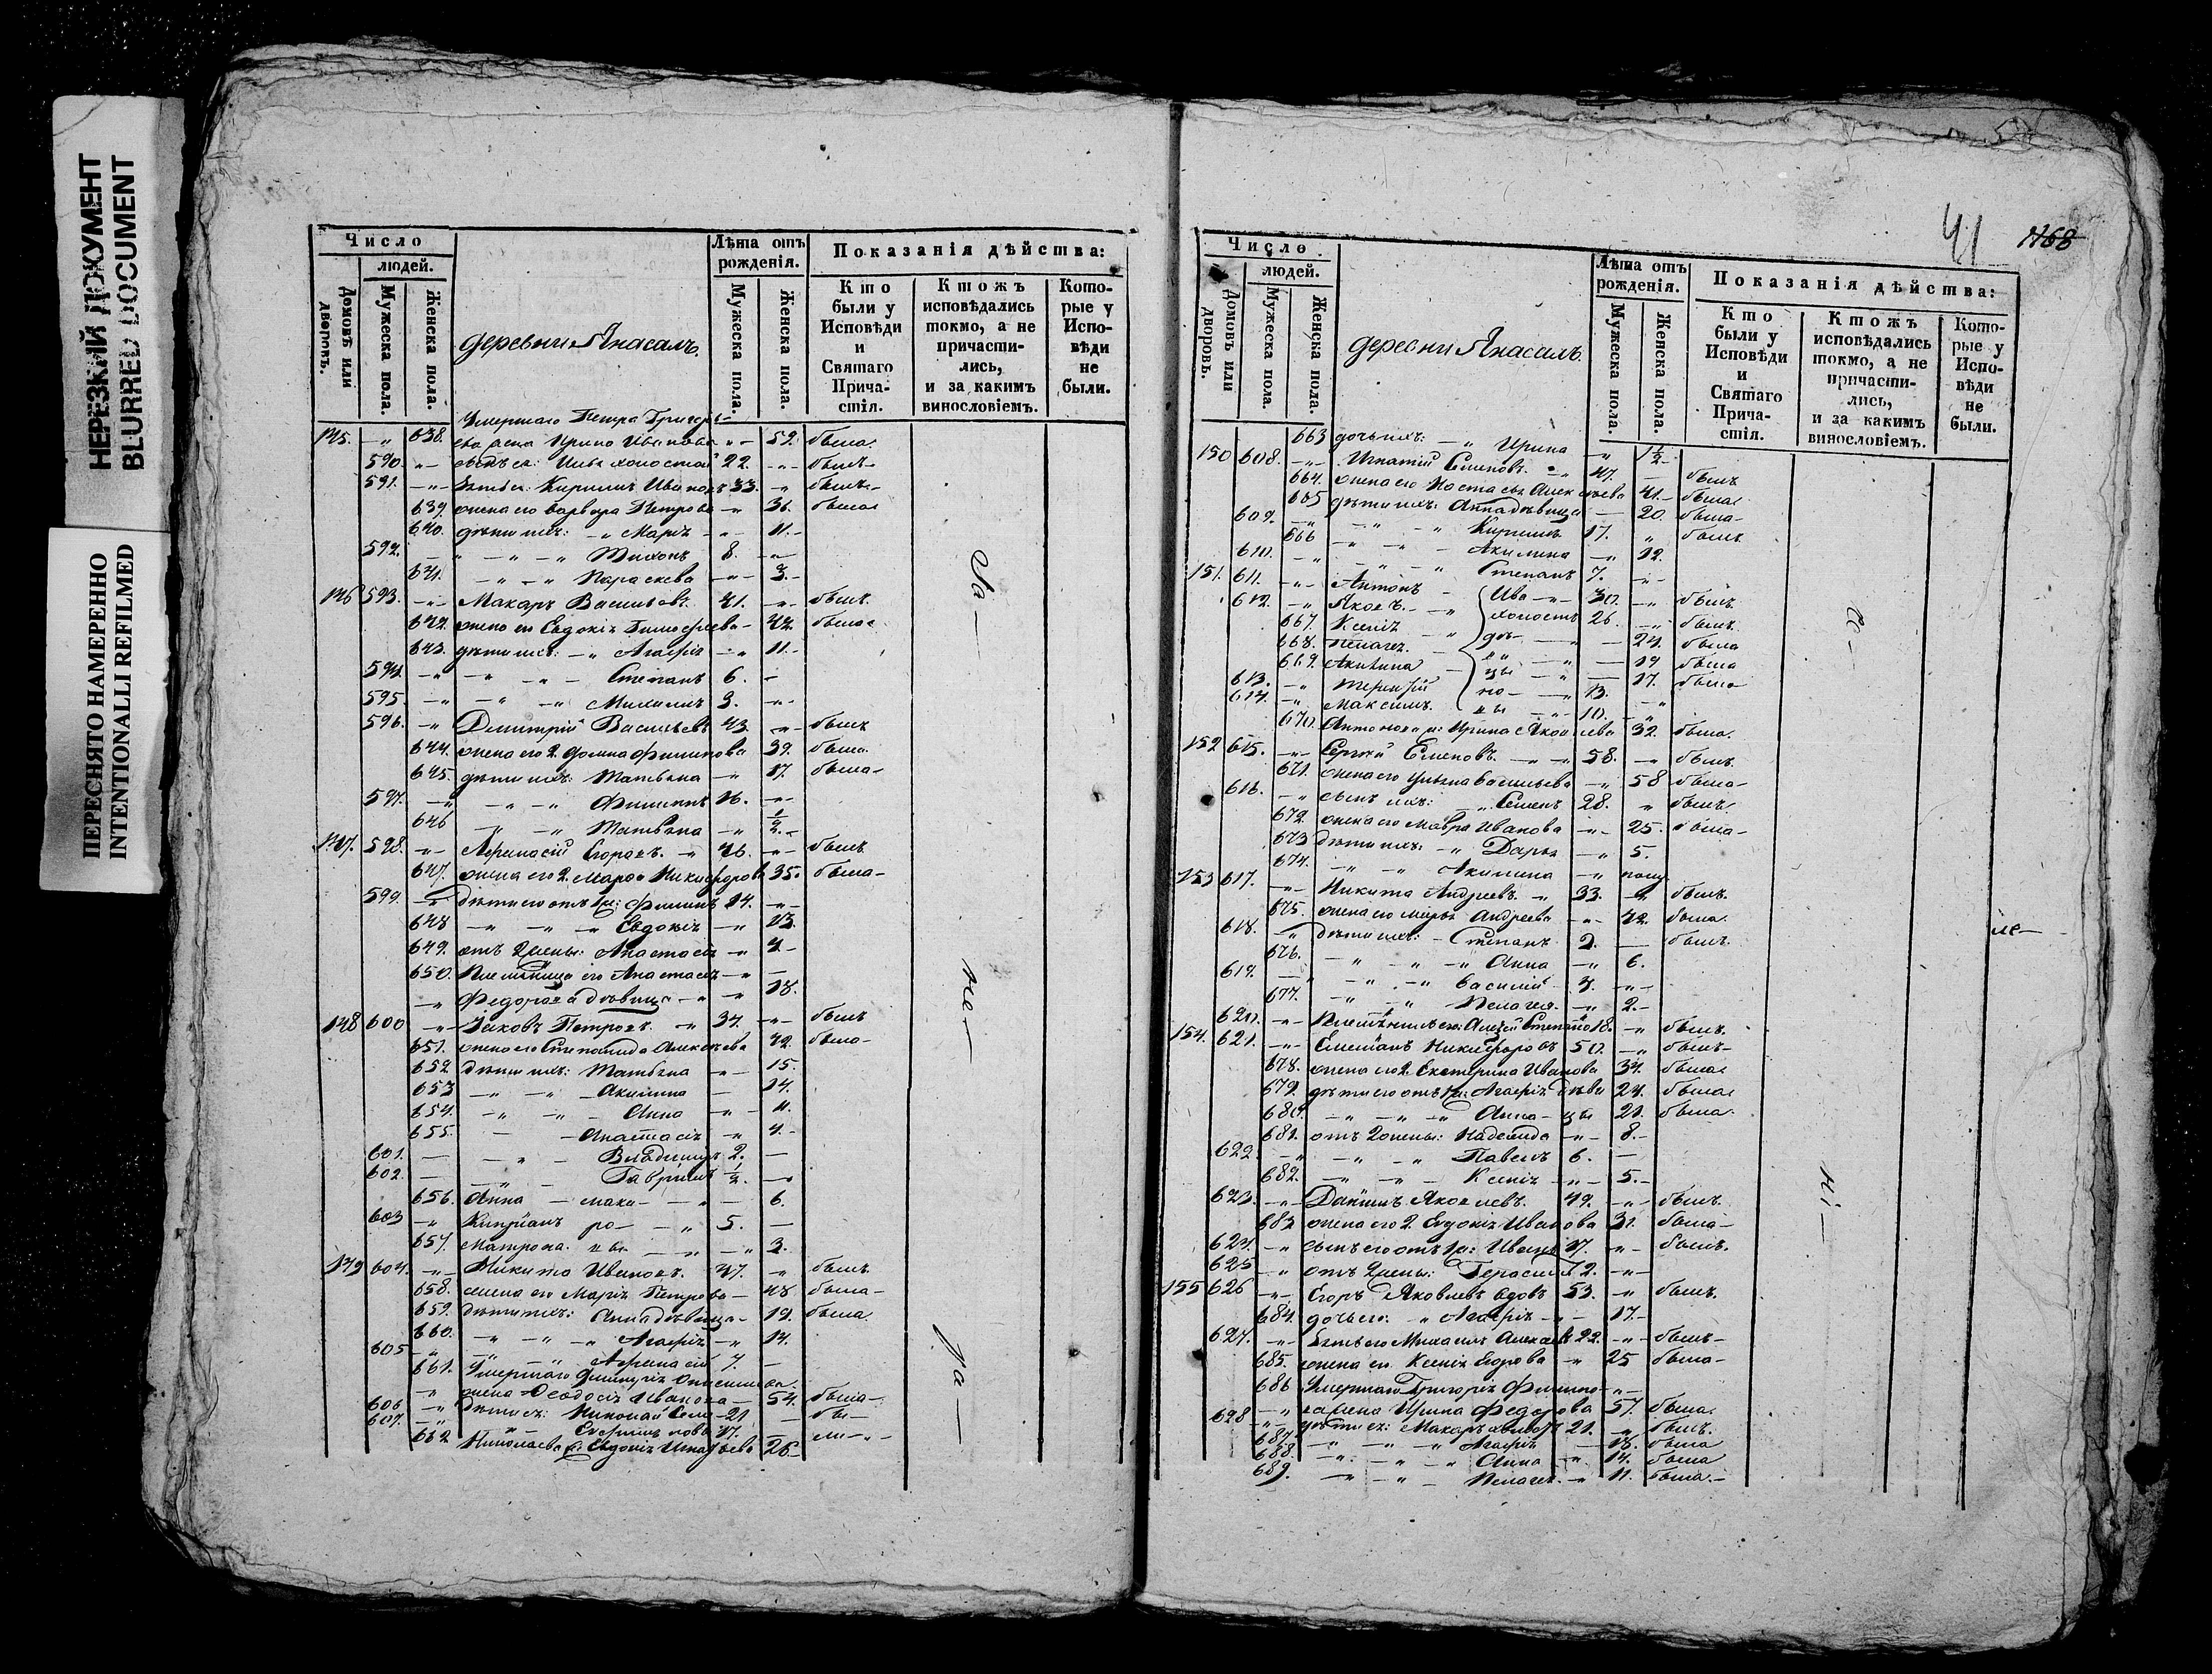 НЕРЕЗКИЙ ДОКУМЕНТ
BLURRED DOCUMENT
ПЕРЕСНЯТО НАМЕРЕННО
INTENTIONALLI REFILMED
Число
людей.
Домовъ или дворовъ.
Мужеска пола.
Женска пола.
деревни Янасалъ
Лѣта отъ рожденія.
Мужеска пола.
Женска пола.
Показанія дѣйства:
Кто были у Исповѣди и Святаго Прича-стія.
Ктожъ исповѣдались токмо, а не причасти-лись, и за какимъ винословіемъ.
Кото-рые у Испо-вѣди не были.
Умершаго Петра Григорь-
145. 638. ева жена Ирина Иванова 52. была
590. сынъ ея: холостой 22. былъ
591. Зять ея: Кириллъ Ивановъ 33. былъ
639. жена его Варвара Петрова 36. была
640. дѣти ихъ: Марія 11.
592. Тихонъ 8.
641. Параскева 3.
146 593. Макаръ Васильевъ 41. былъ
642. жена его Евдокія Тимофеева 42. была
643. дѣти ихъ: Агафія 11.
594. Степанъ 6.
595. Михаилъ 3.
596. Дмитрій Васильевъ 43. былъ
644. жена его 2. Филипова 39. была
645. дѣти ихъ: Татьяна 17. была
597. Филиппъ 16.
646 Татьяна 1/2
147. 598. Афанасій Егоровъ 46. былъ
647. жена его 2. Марфа Никифорова 35. была
599. Дѣти его отъ 1й: Филипъ 14.
648 Евдокія 13.
649. отъ 2 жены: Анастасія 4
650. Племянница его Анастасія
Федорова дѣвица 18.
148 600 Іаковъ Петровъ 37. былъ
651. жена его Степанида Алексѣева 42. была
652. дѣти ихъ: Татьяна 15.
653 Акилина 14.
654. Анна 11.
655. Анастасія 4.
601. Владиміръ 2.
602. Гавріилъ 1/2
656. Анна 6.
603 Кипріанъ 5.
657. Матрона 3.
149 604. Никита Ивановъ 47. былъ
658. жена его Марія Петрова 48 была
659. дѣти ихъ: Анна дѣвица 19. была
660. Агафія 14.
605 Афанасій 7.
661. Умершаго
жена Феодосія Иванова 54. была
606 дѣти ея: Николай 21 бы-
607. 17. ли
662 Николаева ж: Евдокія Игнатьева 26
Ни-
41
1168
Число
людей.
Домовъ или дворовъ.
Мужеска пола.
Женска пола.
деревни Янасалъ
Лѣта отъ рожденія.
Мужеска пола.
Женска пола.
Показанія дѣйства:
Кто были у Исповѣди и Святаго Прича-стія.
Ктожъ исповѣдались токмо, а не причасти-лись, и за какимъ винословіемъ.
Кото-рые у Испо-вѣди не были.
663 дочь ихъ: Ирина 1 1/2
150 608. Игнатій Семеновъ 47. былъ
664. жена его Настасья Алексѣева 41. была
665 дѣти ихъ: Анна дѣвица 20. была
609. Кириллъ 17. былъ
666 Акилина 12.
610. Степанъ 7.
151. 611. Антонъ 30. былъ
612. Яковъ холостъ 26. былъ
667. Ксенія 24. была
668. Пелагея 19 была
669. Акилина 17. была
613. Терентій 13.
614. Максимъ 10.
670. Антонова ж: Ирина Яковлева 32. была
152 615. Сергей Семеновъ 58. былъ
671. жена его Ульяна Васильева 58 была
616. сынъ ихъ: Семенъ 28. былъ
672. жена его Мавра Иванова 25. была
673 дѣти ихъ: Дарья 5.
674. Акилина
153 617. Никита Андреевъ 33. былъ
675. жена его Марья Андреева 42. была
618. дѣти ихъ: Степанъ 9. былъ
676. Анна 6.
619. Василий 4.
677. Пелагея 2.
620. Племянникъ его: 18. былъ
154. 621. Никифоровъ 50. былъ
678. жена его 2. Екатерина Иванова 34. была
679. дѣти его отъ 1й: Агафія дѣви 24. была
680. Анна цы 21. была
681. отъ 2 жены: Надежда 8.
622. Павелъ 6.
682. Ксенія 5.
623. Даніилъ Яковлевъ 49. былъ
683 жена его 2. Евдокія Иванова 31. была
624. сынъ его отъ 1й: Иванъ 17. былъ
625 отъ 2 жены: Герасимъ 2.
155 626 Егоръ Яковлевъ вдовъ 53. былъ
684. дочь его: Агафія 17.
627. Зять его Михаилъ Алексѣевъ 22. былъ
685. жена его Ксенія Егорова 25 была
686 Умершаго Григорія Филипо-
ва жена Ирина Федорова 57. была
628 дѣти ея: Макаръ 21. былъ
687 Агафія 18. была
688. Анна 14. была
689. Пелагея 11. была